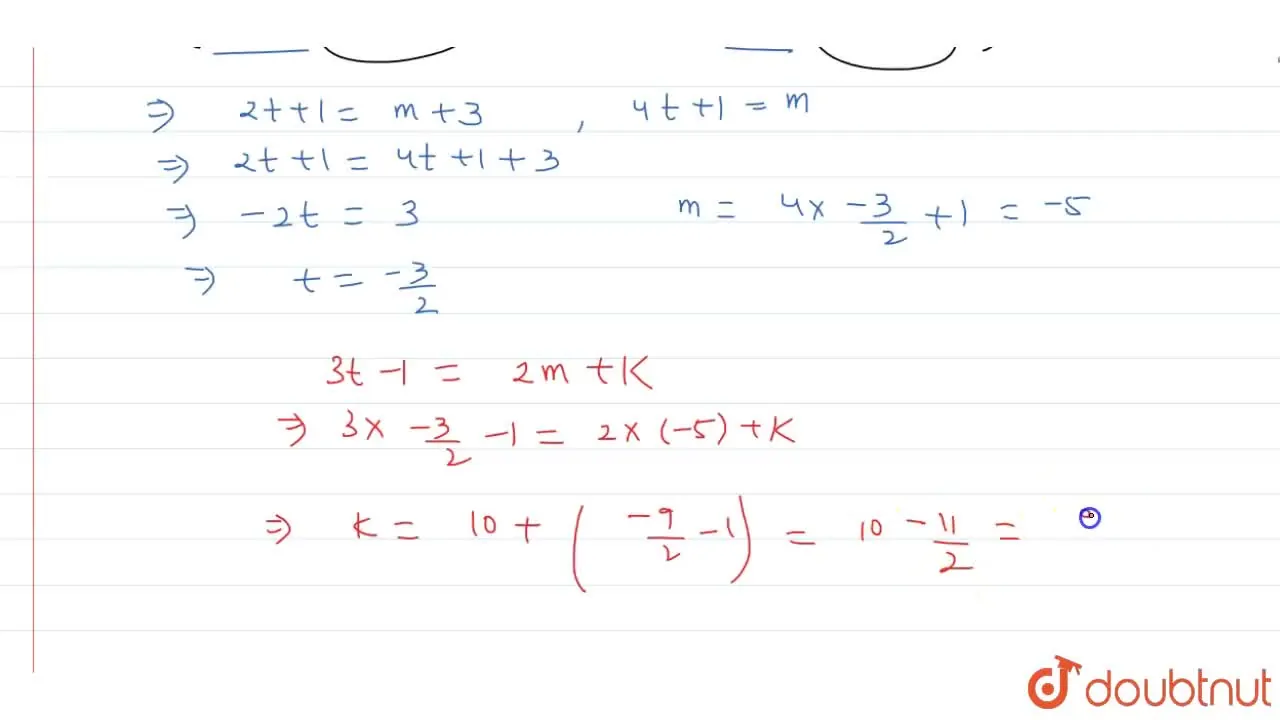 ⇒ 2t + 1 = m + 3 , 4t + 1 = m
⇒ 2t + 1 = 4t + 1 + 3
⇒ -2t = 3 m = 4 × -3/2 + 1 = -5
⇒ t = -3/2
3t - 1 = 2m + K
⇒ 3 × -3/2 - 1 = 2 × (-5) + K
⇒ K = 10 + ( -9/2 - 1 ) = 10 - 11/2 =
doubtnut